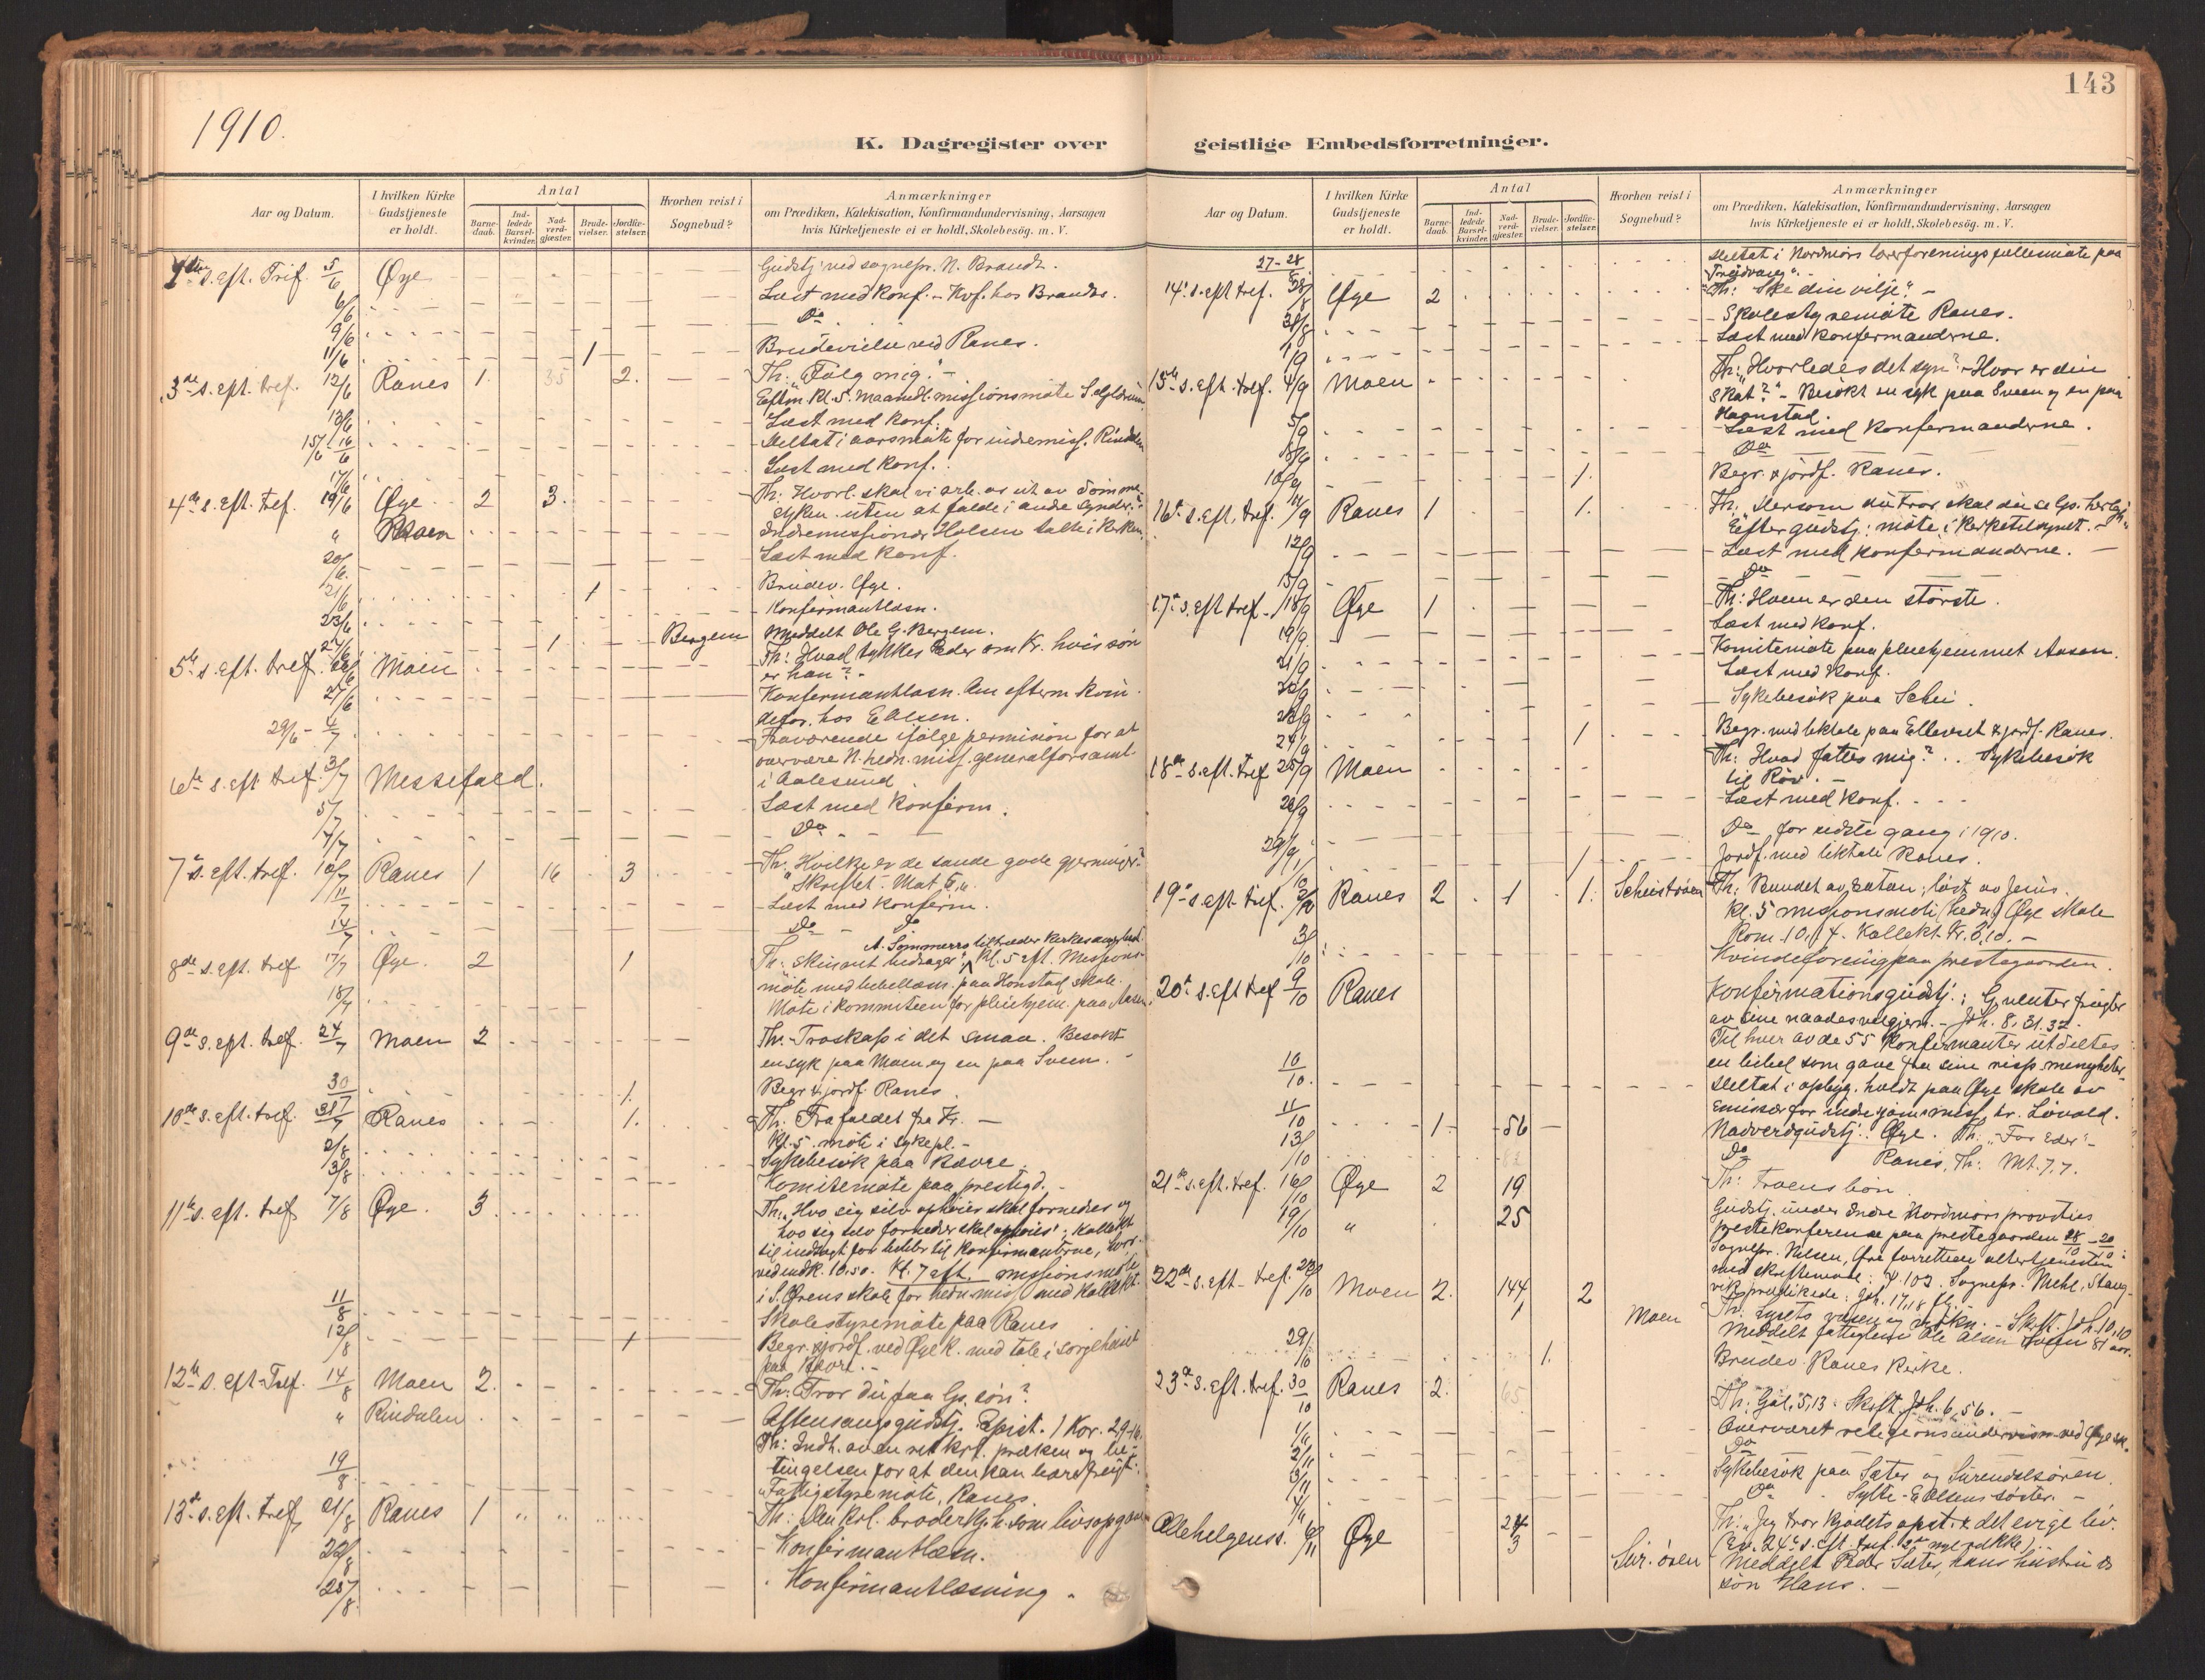 1910.
143
K. Dagregister over geistlige Embedsforretninger.
Aar og Datum.
I hvilken Kirke Gudstjeneste er holdt.
Antal
Barne-daab.
Ind-ledede Barsel-kvinder.
Nad-verd-gjæster.
Brude-vielser.
Jordfæ-stelser.
Hvorhen reist i Sognebud?
Anmærkninger
om Prædiken, Katekisation, Konfirmandundervisning, Aarsagen
hvis Kirketjeneste ei er holdt, Skolebesög. m. V.
s. eft. Trif. 5/6 Øye Gudstj. ved sognepr. N. Brandt.
6/6 Læst med konf. - Kvf. hos Brandts.
9/6 Do
11/6 1 Brudevielse ved Ranes.
3de s. eft. tref. 12/6 Ranes 1 35 2. Th: "Følg mig." -
Eftm. kl. 5. maanedl. missionsmøte
13/6 Læst med konf.
15/6 - 16/6 Deltat i aarsmøte for indremiss. Rindalen
17/6 Læst med konf.
4de s. eft. tref. 19/6 Øye 2 3. Th: Hvorl. skal vi arb. os ut av dømme-
syken uten at falde i andre synder.
" Moen Indremissionær Halsen talte i kirken.
20/6. Læst med konf.
21/6 1 Brudev. Øye.
23/6 Konfirmantlæsn.
24/6 1 Bergem Meddelt Ole G. Bergem.
5te s. eft. tref. 26/6 Moen Th: Hvad tykkes Eder om Kr. hvis søn
er han? -
27/6 Konfirmantlæsn. Om efterm. kvin-
defor. hos E Olsen.
29/6 - 4/7 Fraværende ifølge permision for at
overvære N. hedn. miss. generalforsaml.
i Aalesund
6te s. eft. tref. 3/7 Messefald.
5/7 Læst med konfirm.
7/7 Do
7de s. eft. tref. 10/7 Ranes 1 16 3 Th: Hvilke er de sande gode gjerninger?
"Skriftet". Mat.
11/7 Læst med konfirm.
14/7 Do Do
8de s. eft. tref 17/7 Øye. 2 1 Th: Skinnet bedrager. kl. 5 eft. Missions-
møte med bibellæsn. paa Honstad skole.
18/7 Møte i kommiteen for pleiehjem. paa Aasen.
9de s. eft. tref. 24/7 Moen 2 Th.- Troskap i det smaa. Besøkt
en syk paa Moen og en paa Sveen. -
30/7 1. Begr. & jordf. Ranes
10de s. eft. tref. 31/7 Ranes 1. Th. Frafaldet fra Kr. -
Kl. 5. møte i sykepl. -
2/8 Sykebesøk paa Kavre
3/8 Komitemøte paa prestegd. -
11te s. eft. tref 7/8 Øye. 3 Th: "Hvo sig selv ophøier skal fornedres og
hvo sig selv fornedrer skal ophøies". Kollekt
til indtægt for bibler til konfirmanterne,
ved indk. 10.50. Kl. 7 eft. missionsmøte
i S. Ørens skole for hedn. miss med kollekt.
11/8 Skolestyremøte paa Ranes
12/8 1 Begr. & jordf. ved Øye k. med tale i sørgehuset
paa Kavre. -
12te s. eft. Tref. 14/8 Moen 2. Th: Tror du paa Gs. søn?
" Rindalen Aftensangsgudstj. Epist. 1 Kor. 2 9-16.
Th: Indh. av en ret krl. præken og be-
tingelsen for at den kan bære frugt.
19/8 Fattigstyremøte, Ranes.
13de s. eft. tref. 21/8 Ranes 1 Th: Den krl. broderkjh. som livsopgave
22/8 Konfirmantlæsn.
25/8 Konfirmantlæsning.
27-28/8 Deltat i Nordmørs lærerforenings fællesmøte paa
14de s. eft tref. 28/8 Øye 2 Th: "Ske din vilje". -
31/8 Skolestyremøte Ranes.
1/9 Læst med konfermanderne.
15de s. eft. tref. 4/9 Moen Th: "Hvorledes det syn? - Hvor er din
Skat?" - Besøkt en syk paa Sveen og en paa
Haanstad.
5/9 Læst med konfermanderne.
8/9 Do
10/9 1. Begr. & jordf. Ranes.
16de s. eft. tref. 11/9 Ranes 1 1. Th: Dersom du tror skal du se Gs. herligh.
Efter gudstj: møte i kirketilsynet.
12/9 Læst med konfermanderne. -
15/9 Do
17de s. eft tref. 18/9 Øye 1 Th: Hvem er den største.
19/9 Læst med konf.
21/9 Komitemøte paa pleiehjemmet Aasen.
22/9 Læst med konf.
23/9 Sykebesøk paa Schei.
24/9 1 Begr. med liktale paa Elleveset & jordf. Ranes.
18de s. eft. tref 25/9 Moen Th: Hvad fattes mig? Sykebesøk
til Røv. -
26/9 Læst med konf.
29/9 Do for sidste gang i 1910.
1/10 1 Jordf. med liktale Ranes.
19de s. eft. tref. 2/10 Ranes 2 1 1. Scheistrøen Th: Bundet av Satan; løst av Jesus.
Kl. 5 missionsmøte (hedn.) Øye skole
Rom. 10,14. Kollekt Kr. 3,10. -
3/10 Kvindeforening paa prestegaarden.
20de s. eft tref 9/10 Ranes Konfirmationsgudstj.: G. venter frugter
av sine naadesvelgjern. - Joh. 8, 31.32.
Til hver av de 55 konfirmanter utdeltes
en bibel som gave fra sine resp. menigheter.
10/10. Deltat i opbyg. holdt paa Øye skole av
Emissær for indre sjøm.miss, hr. Løvold.
11/10 1. 56 Nadverdgudstj.: Øye. Th. "For Eder". -
13/10 Do Ranes, Th: Mt. 7, 7.
21de s. eft. tref. 16/10 Øye 2 19 Th: Troens bøn
19/10 " 25 Gudstj. under Indre Nordmørs provstis
prestekonferense paa prestegaarden 18/10 - 20/10:
Sognepr. Nilsen, Øre forrettede altertjenesten
med skriftemaal: 4. 103. Sognepr. Mehl, Stang-
vik prædikede: Joh. 17,18 flg.
22de s. eft. tref. 23/10 Moen 2. 144 2 Th: Lysets væsen og virkn. - Skrift. Joh. 10,10
1 Moen Meddelt fattiglem Ole Olsen Sveen 81 aar.
29/10 1. Brudev. Ranes kirke.
23de s. eft. tref. 30/10 Ranes 2. 65 Th: Gal. 5,13. Skrift. Joh. 6, 56. -
1/11 Overværet religionsundervisn. ved Øye sk.
2/11 Do
3/11 Sykebesøk paa Sæter og Surendalsøren.
4/11 Do Sylte - E Olsens søster. -
Allehelgenss. 6/11 Øye 24 Th: "Jeg tror kjødets opst. & det evige liv.
(Ev. 24de s. eft. tref. 2den nye række).
3 Sur. øren Meddelt Peder Sæter, hans hustru &
søn Hans. -